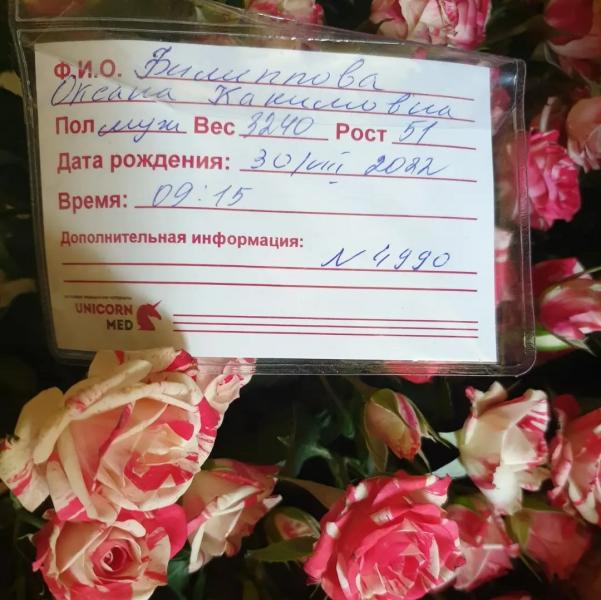 Ф.И.О. Филиппова
Оксана Камиловна
Пол муж Вес 3240 Рост 51
Дата рождения: 30/VIII 2022
Время: 09:15
Дополнительная информация:
N 4990
UNICORN
MED